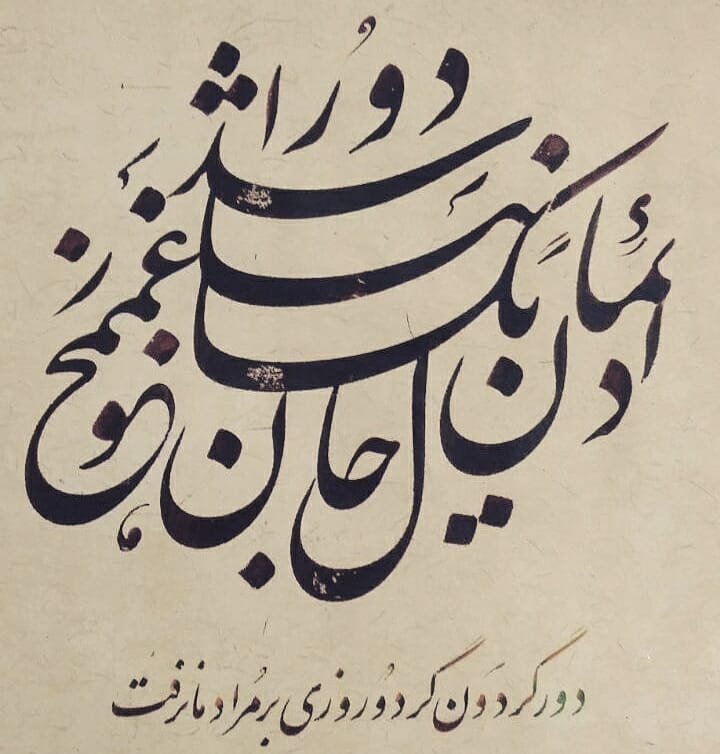 دائما یکسان نباشد حال دوران غم مخور
دور گردون گر دو روزی بر مراد ما نرفت